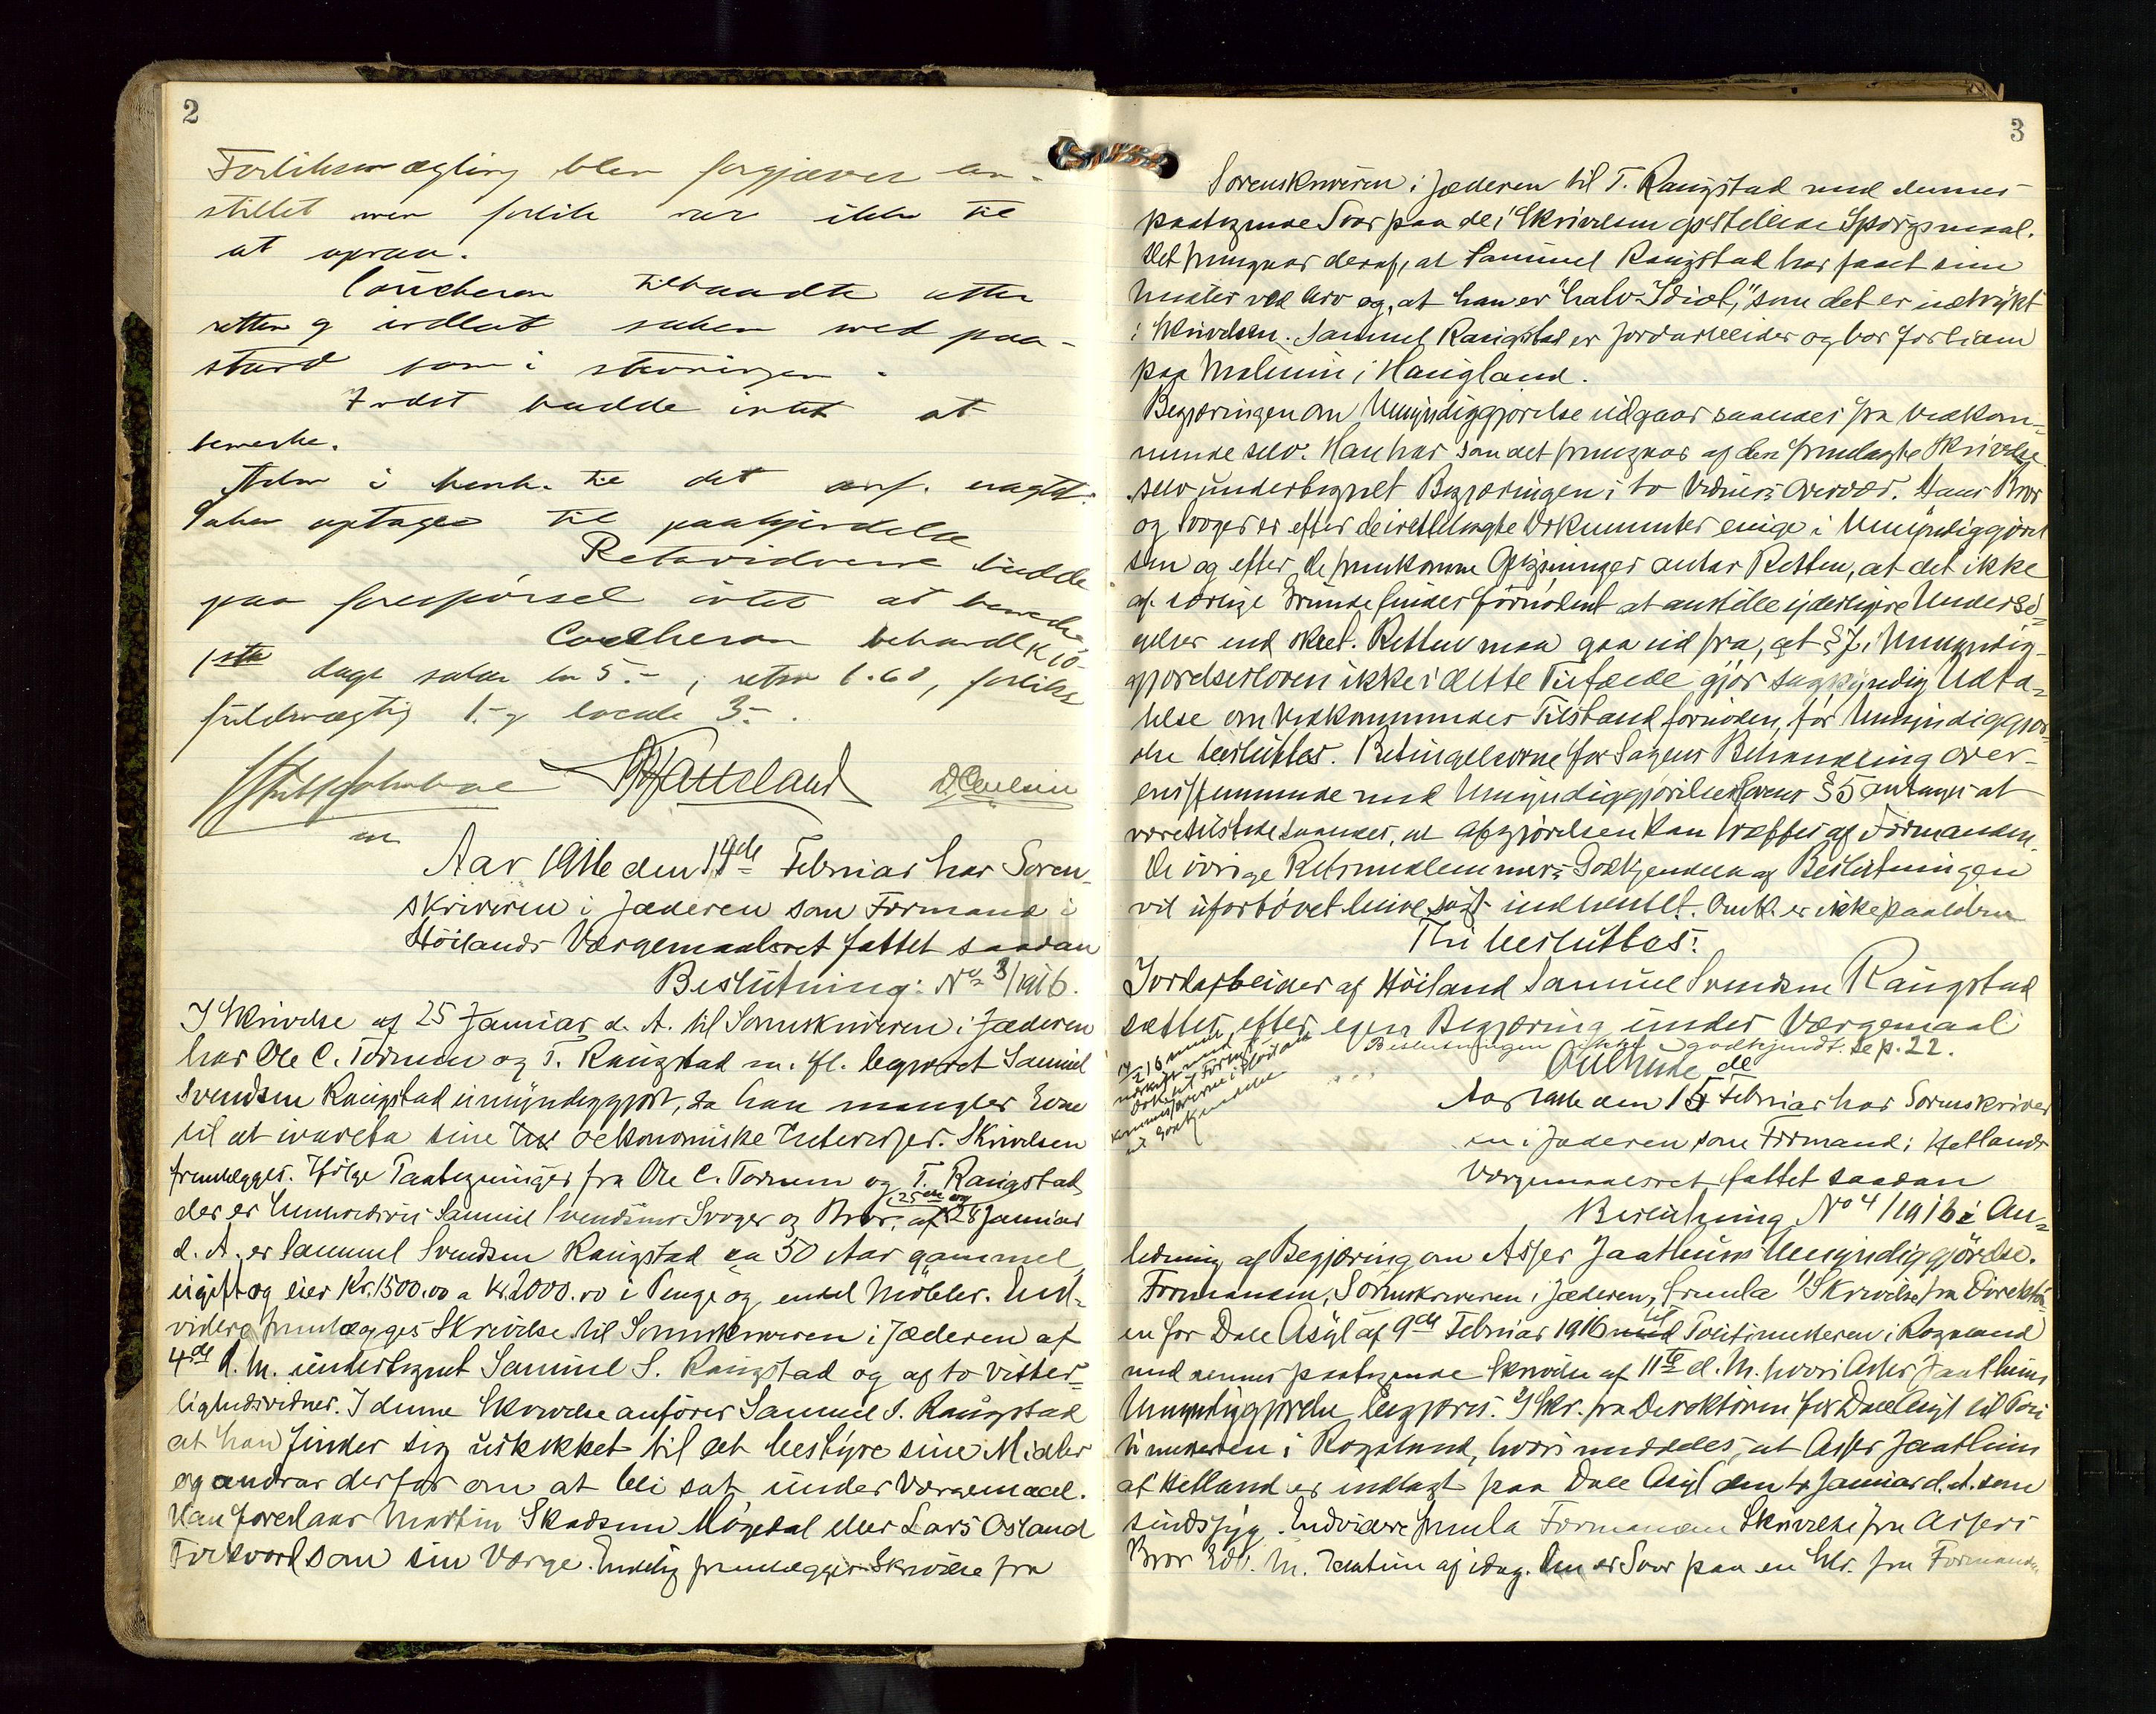 2
Forliksmægling blev forgjæves an-
stillet men forlik var ikke til
at opnaa.
Coucheron tilbaadte atter
retten og indlod saken med paa-
stand som i stevningen.
Indst hadde intet at
bemerke.
Adm i henh. til det anf. nagtet.
Saken optages til paakjendelse
Retsvidnerne hadde
paa forespørsel intet at bemerke
Coucheron behandl K 10-
1ste dags salær kr 5.-, retsv 1.60, forliks
fuldmægtig 1.- og locale 3.-.
Aar 1916 den 14de Februar har Soren-
skriveren i Jæderen som Formand i
Höilands Værgemaalsret fattet saadan
Beslutning: No 3/1916.
I Skrivelse af 25 Januar d. A. til Sorenskriveren i Jæderen
har Ole C. Torsum og T. Raugstad m. fl. begjæret Samuel
Svendsen Raugstad umyndiggjort, da han mangler Evne
til at ivareta sine oekonomiske Interesser. Skrivelsen
fremlægges. Ifölge Paategninger fra Ole C. Torsum og T. Raugstad
der er henholdsvis Samuel Svendsens Svoger og Bror, af 25de og 28 Januar
d. A. er Samuel Svendsen Raugstad ca 50 Aar gammel,
ugift og eier Kr. 1500.00 a Kr. 2000.00 i Penge og endel Möbler. End-
videre fremlægges Skrivelse til Sorenskriveren i Jæderen af
4de d. M. undertegnet Samuel S. Raugstad og af to Vitter-
lighedsvidner. I denne Skrivelse anförer Samuel S. Raugstad
at han finder sig uskikket til at bestyre sine Midler
og andrar derfor om at bli sat under Værgemaal.
Han foreslaar Martin Skadsem Mögedal eller Lars Osland
Forkvorl som sin Værge. Endelig fremlægges Skrivelse fra
3
Sorenskriveren i Jæderen til T. Raugstad med dennes
paategnede Svar paa de i Skrivelsen opstillede Spörgsmaal.
Det fremgaar deraf, at Samuel Raugstad har faaet sine
Midler ved Arv og, at han er "halv-Idiot," som det er udtrykt
i Skrivelsen. Samuel Raugstad er Jordarbeider og bor for tiden
paa Malmin i Haugland.
Begjæringen om Umyndiggjörelse udgaar saaledes fra Vedkom-
mende selv. Han har som det fremgaar af den fremlagte Skrivelse
selv undertegnet Begjæringen i to Vidners Overvær. Hans Bror
og Svoger er efter de i ret fremlagte Dokumenter enige i Umyndiggjörel
sen og efter de fremkomne Oplysninger antar Retten, at det ikke
af særlige Grunde findes fornödent at anstille yderligere Undersö-
gelser end skeet. Retten maa gaa ud fra, at § 7 i Umyndig-
gjørelsesloven ikke i dette Tilfælde gjör sagkyndig Udta-
lelse om Vedkommendes Tilstand fornöden, før Umyndiggjör-
else besluttes. Betingelserne for Sagens Behandling over-
ensstemmende med Umyndiggjörelseslovens § 5 antages at
være tilstede saaledes, at Afgjörelsen kan træffes af Formanden.
De övrige Retsmedlemmers Godkjendelse af Beslutningen
vil ufortövet blive sögt indhentet. Omk. er ikke paalöbne
Thi besluttes:
Jordarbeider af Höiland Samuel Svendsen Raugstad
sættes efter egen Begjæring under Værgemaal
Beslutningen ikke godkjendt. se p. 22.
14/2 16 sendt
udskrift med
Dokum. til Form.
kommissærerne i Höiland
til Godkjendelse
Aar 1916 den 15de Februar har Sorenskriver
en i Jæderen som Formand i Hetlands
Værgemaalsret fattet saadan
Beslutning No 4/1916 i An-
ledning af Begjæring om Asser Jaathuns Umyndiggjörelse.
Formanden, Sorenskriveren i Jæderen, fremla 1) Skrivelse fra Direktör
en for Dale Asyl af 9de Februar 1916 til Politimesteren i Rogaland
med dennes paategnede Skrivelse af 11te d. M. hvori Asser Jaathuns
Umyndiggjörelse begjæres. I Skr. fra Direktören for Dale Asyl til Poli
timesteren i Rogaland, hvori meddeles, at Asser Jaathun
af Hetland er indlagt paa Dale Asyl den 4 Januar d. A. som
sindssyg. Endvidere fremla Formanden Skrivelse fra Assers
Bror Edv. M. Jaathun af idag. Den er Svar paa en Skr. fra Formanden